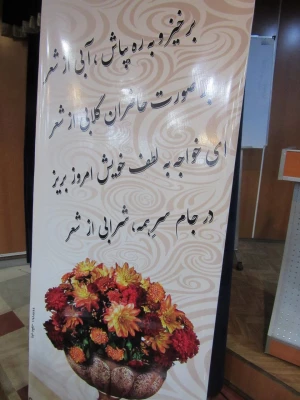 برخیز و به ره پپاش، آبی از شعر
بر صورت حاضران گلابی از شعر
ای خواجه به لطف خویش امروز بریز
در جام سر همه، شرابی از شعر